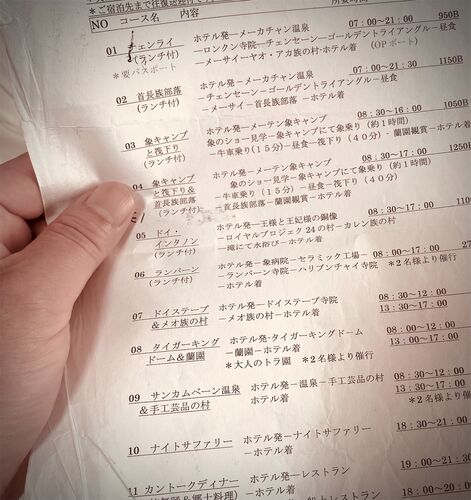 ＊ご宿泊先まで往復送迎付
NO コース名 内容
01 チェンライ ホテル発－メーカチャン温泉 07：00～21：00 950B
(ランチ付) －ロンクン寺院－チェンセーン－ゴールデントライアングル－昼食
＊要パスポート －メーサイ－ヤオ・アカ族の村－ホテル着 (OPボート)
02 首長族部落 ホテル発－メーカチャン温泉 07：00～21：30 1150B
(ランチ付) －チェンセーン－ゴールデントライアングル－昼食
－メーサイ－首長族部落－ホテル着
03 象キャンプ ホテル発－メーテン象キャンプ 08：30～16：00 1050B
と筏下り 象のショー見学－象キャンプにて象乗り（約1時間）
(ランチ付) －牛車乗り(１５分)－昼食－筏下り(４０分)－蘭園観賞－ホテル着
04 象キャンプ ホテル発－メーテン象キャンプ 08：30～17：00 1250B
と筏下り＆ 象のショー見学－象キャンプにて象乗り（約1時間）
首長族部落 －牛車乗り(１５分)－昼食－筏下り(４０分)
(ランチ付) －首長族部落－蘭園観賞－ホテル着
05 ドイ・ ホテル発－王様と王妃様の銅像 08：00～17：00
インタノン －ロイヤルプロジェク24の村－カレン族の村
(ランチ付) －滝にて水浴び－ホテル着
06 ランパーン ホテル発－象病院－セラミック工場－ 08：00～17：00
(ランチ付) －ランパーン寺院－ハリプンチャイ寺院 ＊2名様より催行
－ホテル着
07 ドイステープ ホテル発－ドイステープ寺院 08：30～12：00
＆メオ族の村 －メオ族の村－ホテル着 13：30～17：00
08 タイガーキング ホテル発-タイガーキングドーム 08：00～12：00
ドーム＆蘭園 －蘭園－ホテル着 13：00～17：00
＊大人のトラ園 ＊2名様より催行
09 サンカムペーン温泉 ホテル発－温泉－手工芸品の村 08：30～12：00
＆手工芸品の村 ホテル着 13：30～17：00
＊2名様より催
10 ナイトサファリー ホテル発－ナイトサファリー 18：30～21：
－ホテル着
11 カントークディナー ホテル発－レストラン 19：00～21：
－ホテル着 18：00～20：